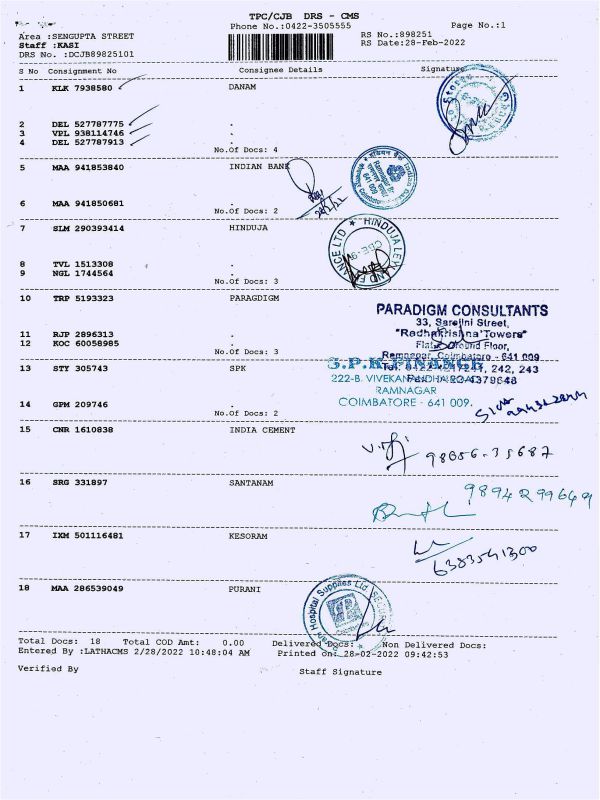 TPC/CJB DRS - CMS
Phone No.:0422-3505555 Page No.:1
Area :SENGUPTA STREET RS No.:898251
Staff :KASI RS Date:28-Feb-2022
DRS No. :DCJB89825101
S No Consignment No Consignee Details Signature
1 KLK 7938580 DANAM
2 DEL 527787775 .
3 VPL 938114746 .
4 DEL 527787913 .
No.Of Docs: 4
5 MAA 941853840 INDIAN BANK
6 MAA 941850681 .
No.Of Docs: 2
28/2/22
7 SLM 290393414 HINDUJA
8 TVL 1513308 .
9 NGL 1744564 .
No.Of Docs: 3
HINDUJA LEYLAND FINANCE LTD
10 TRP 5193323 PARAGDIGM
PARADIGM CONSULTANTS
33, Sarojini Street,
"Radhakrishna Towers"
11 RJP 2896313 .
12 KOC 60058985 .
Ground Floor,
Ramnagar, Coimbatore - 641 009
No.Of Docs: 3
S.P.K. FINANCE
13 STY 305743 SPK
222-B. VIVEKANANDHA ROAD
RAMNAGAR
COIMBATORE - 641 009.
14 GPM 209746 .
No.Of Docs: 2
15 CNR 1610838 INDIA CEMENT
98656-35687
16 SRG 331897 SANTANAM
9894299649
17 IXM 501116481 KESORAM
6383541300
18 MAA 286539049 PURANI
Hospital Supplies Ltd
Total Docs: 18 Total COD Amt: 0.00 Delivered Docs: Non Delivered Docs:
Entered By :LATHACMS 2/28/2022 10:48:04 AM Printed on: 28-02-2022 09:42:53
Verified By Staff Signature